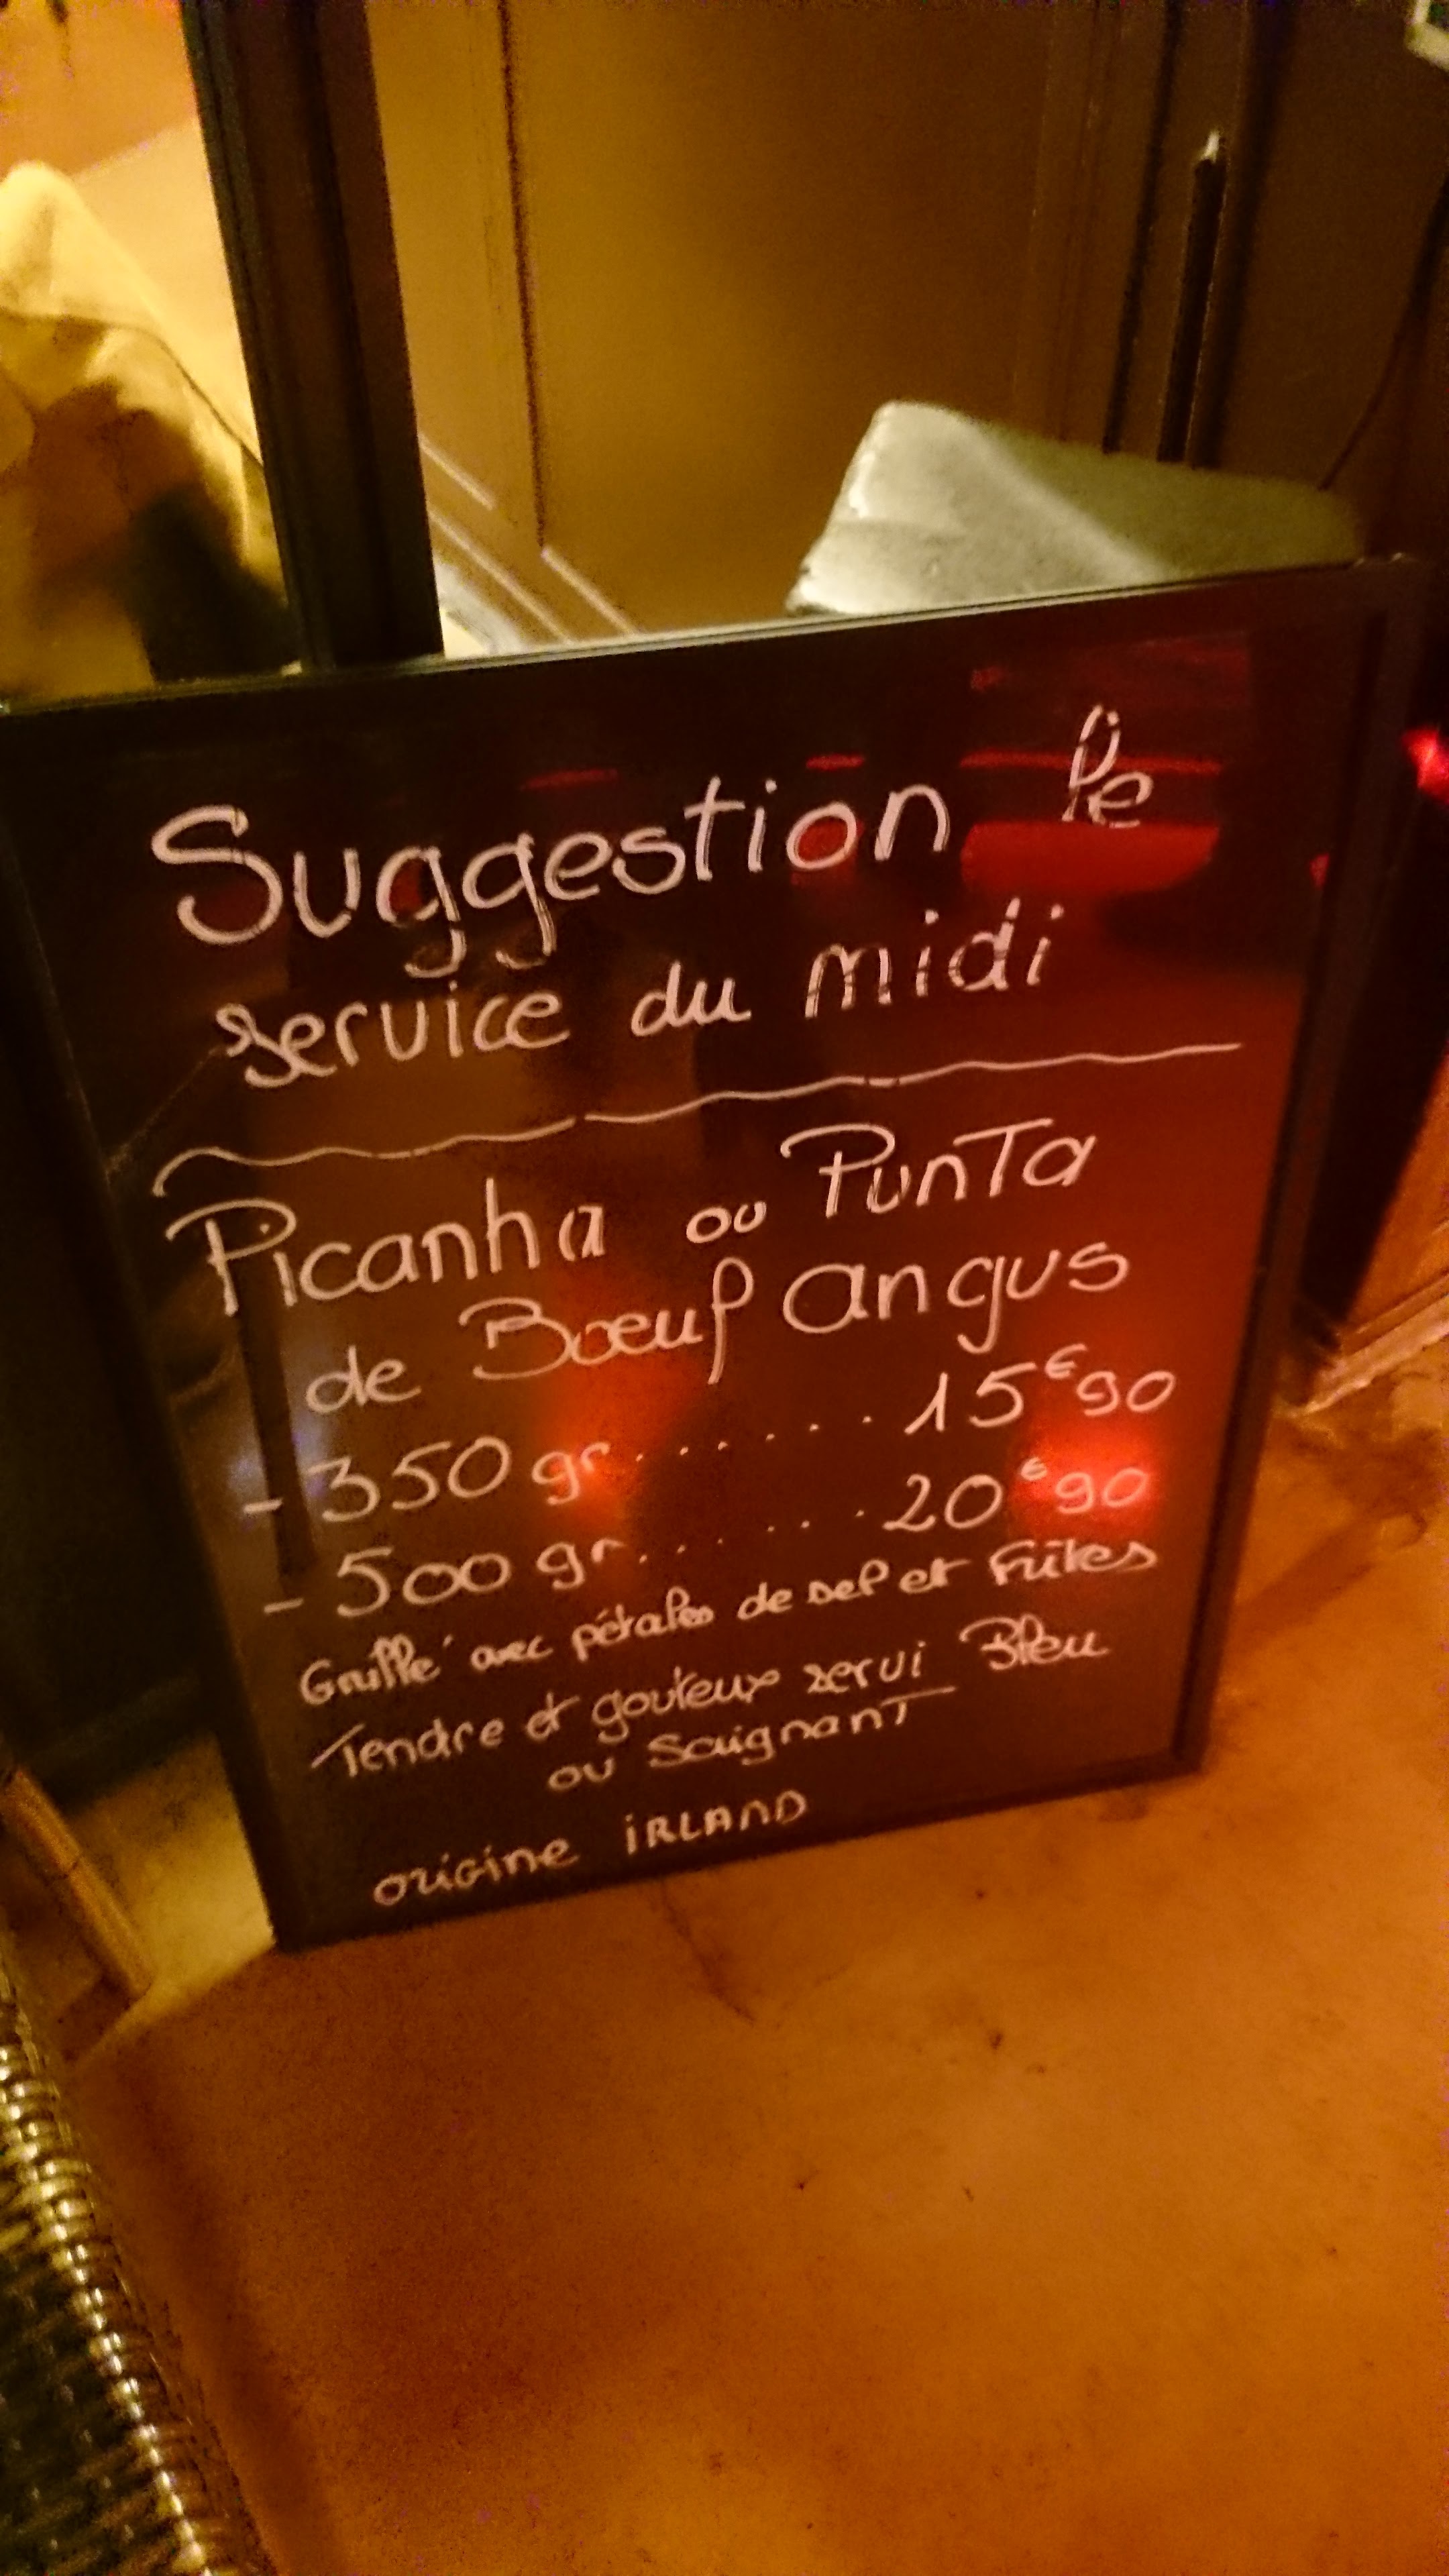 Suggestion le
service du midi
Picanha ou Punta
de Bœuf angus
- 350 gr....... 15€90
- 500 gr....... 20€90
Grillé avec pétales de sel et Frites
Tendre et gouteux servi Bleu
ou Saignant
origine iRLAND